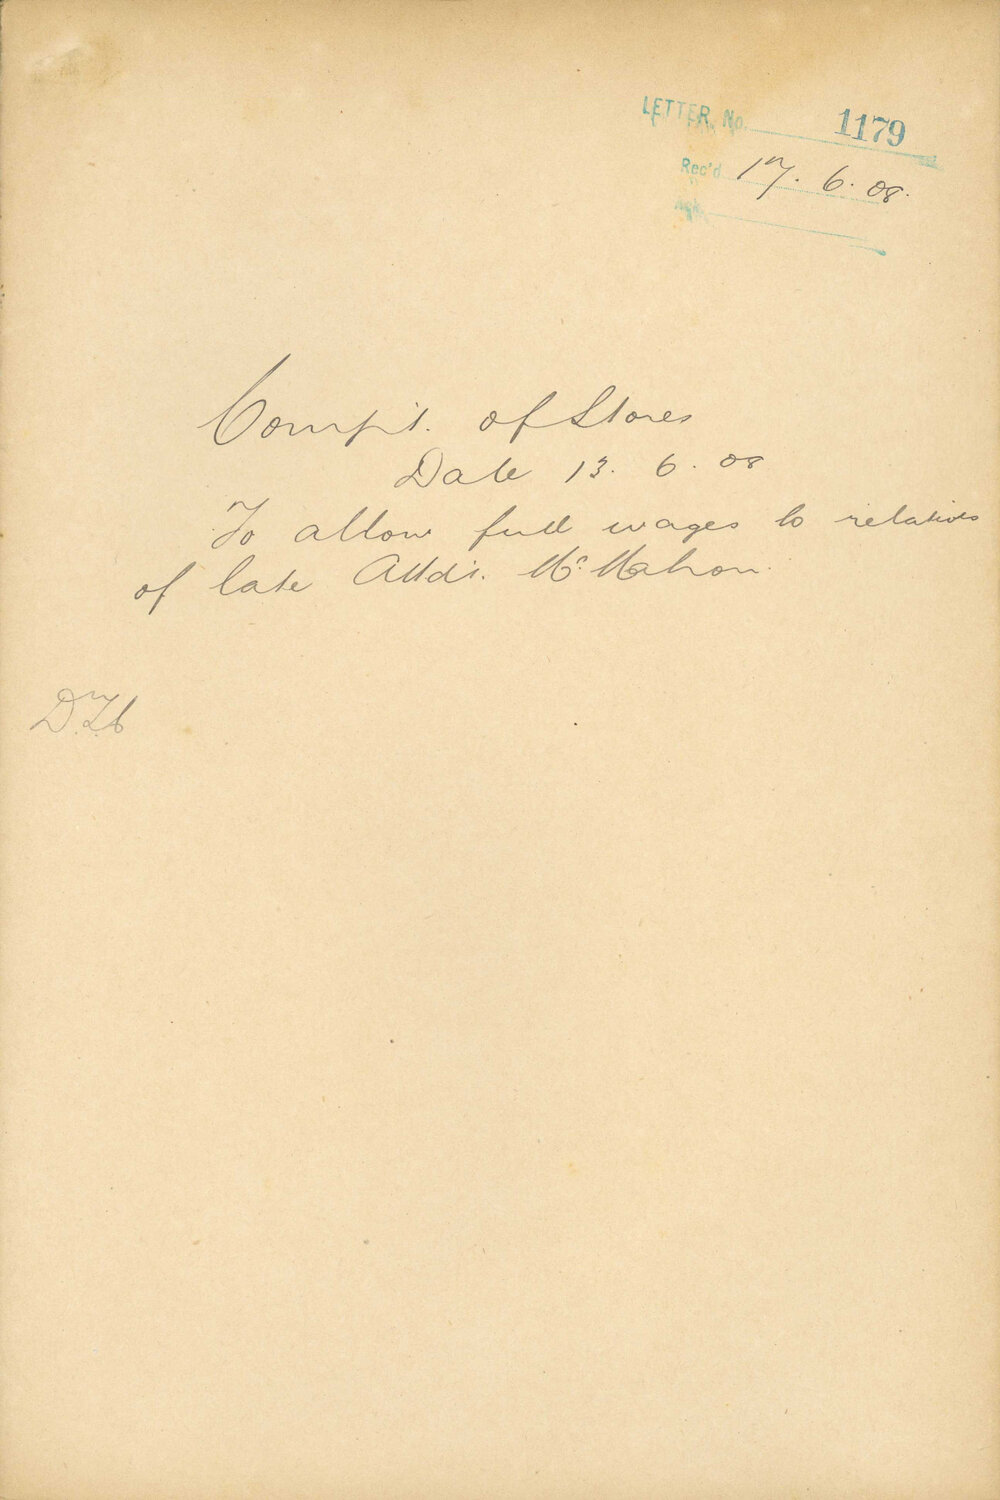 LETTER No. 1179
Rec'd 17. 6. 08.
Ack.
Comp't. of Stores
Date 13. 6. 08
To allow full wages to relatives
of late Attdt. McMahon.